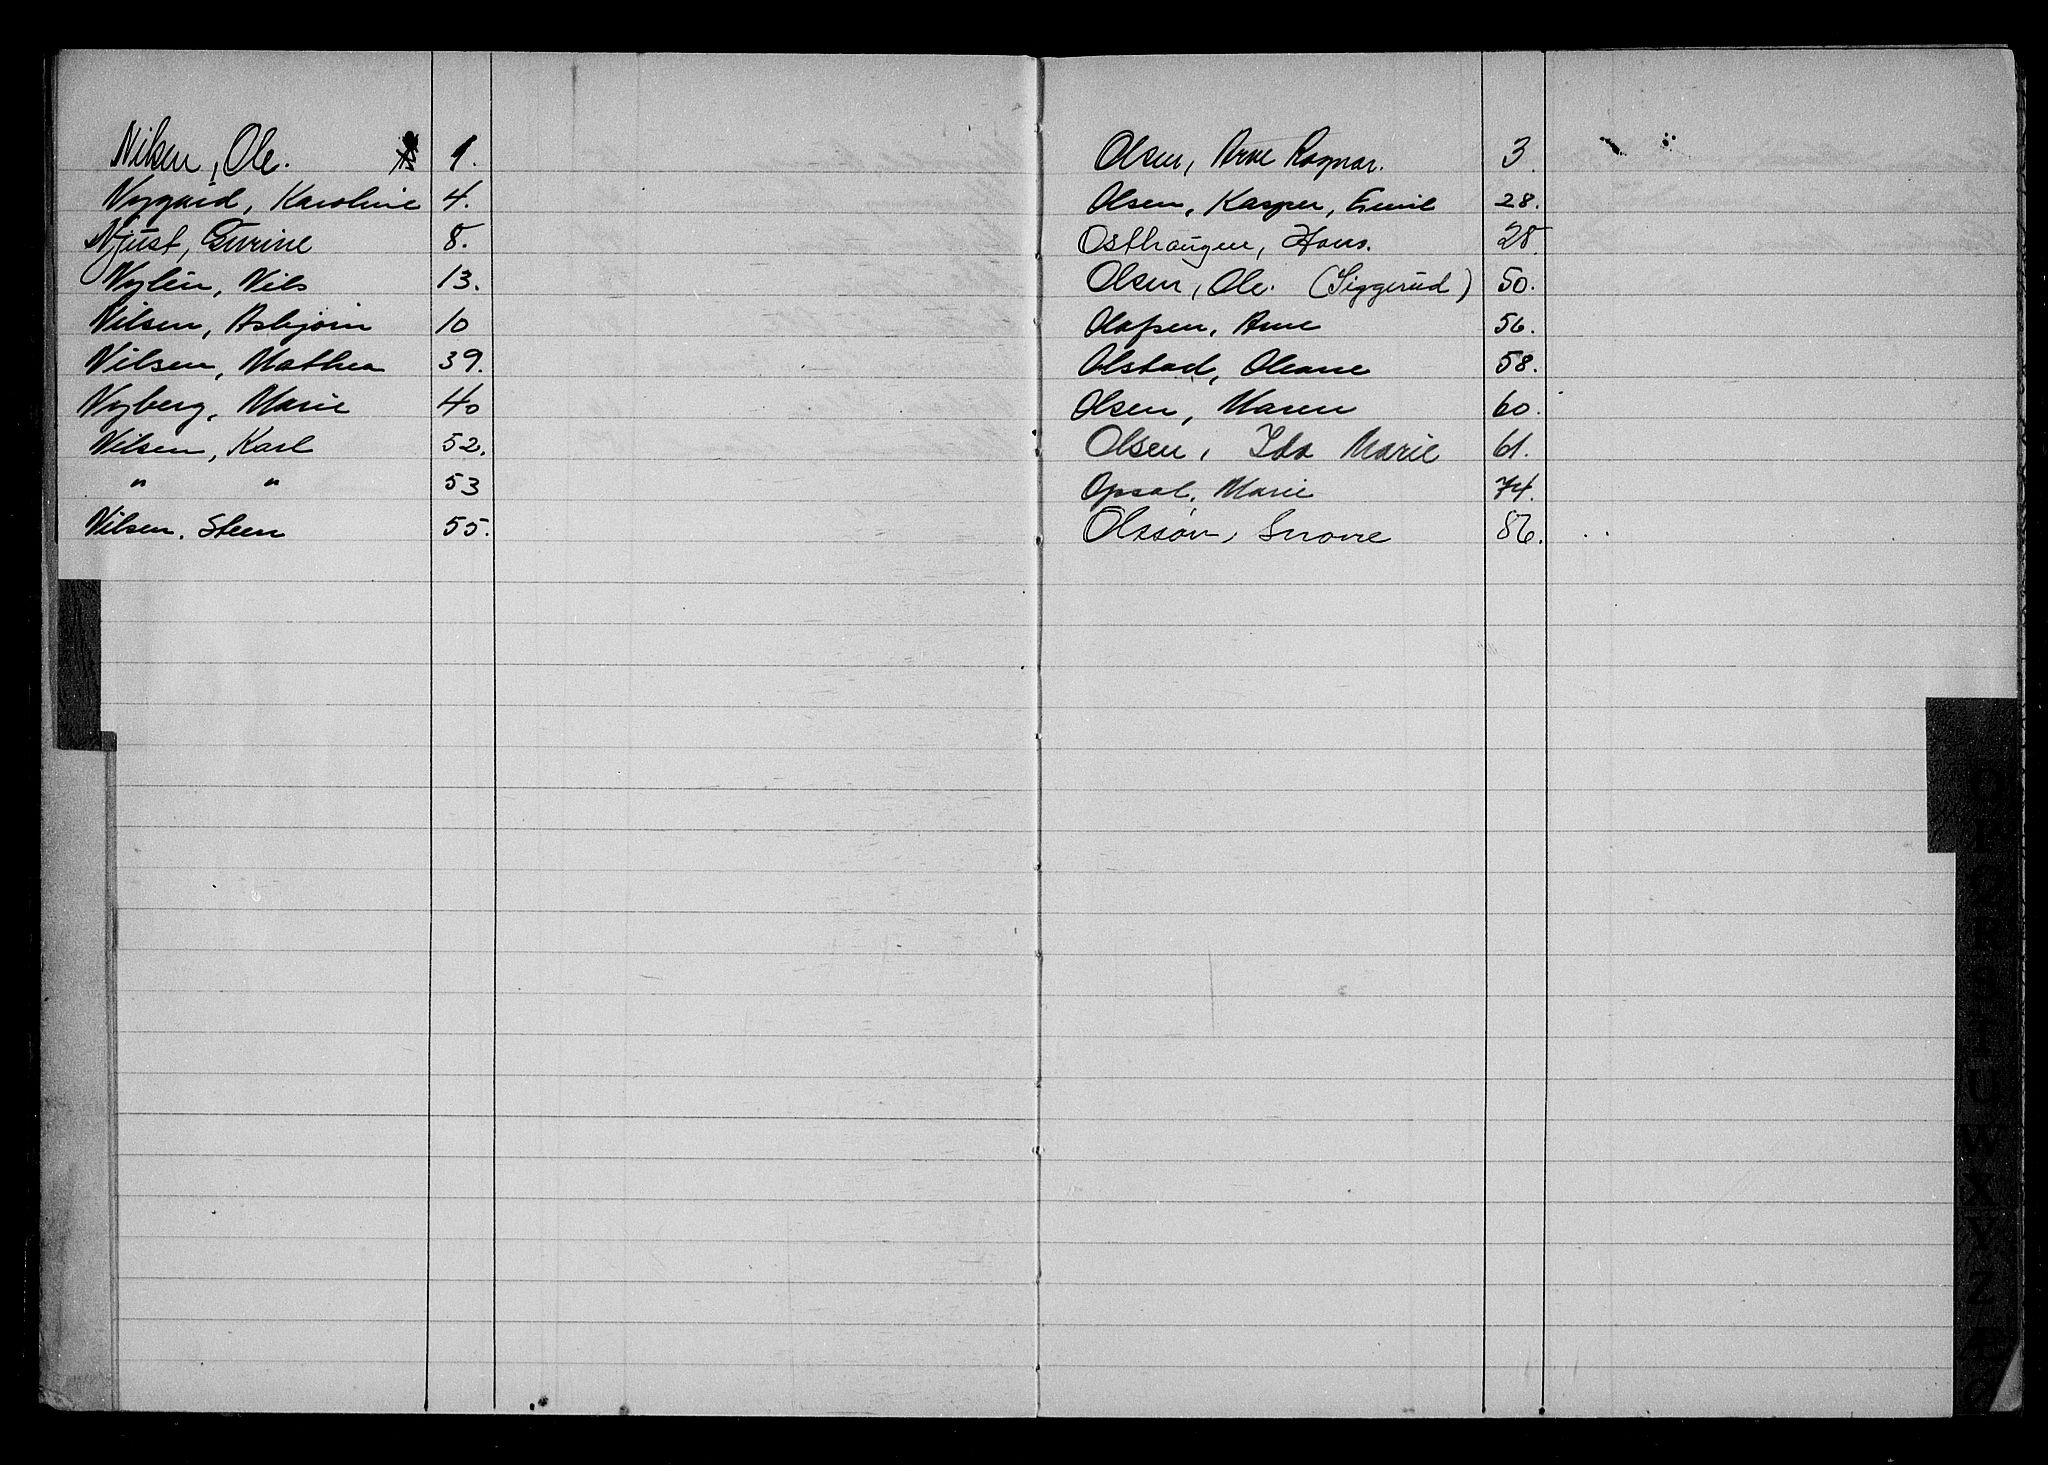 Nilsen, Ole. 1.
Nygaard, Karoline 4.
Njust, Gurine 8.
Nylén, Nils 13.
Nilsen, Asbjørn 10
Nilsen, Mathea 39.
Nyberg, Marie 40
Nilsen, Karl 52.
" " 53
Nilsen. Steen 55.
Olsen, Arne Ragnar. 3.
Olsen, Kasper, Emil 28.
Osthaugen, Hans. 28
Olsen, Ole. (Siggerud) 50.
Olafsen, Arne 56.
Olstad, Oleane 58.
Olsen, Maren 60.
Olsen, Ida Marie 61.
Opsal, Marie 74.
Olssøn, Snorre 86.
O
P
Q
R
S
T
U
W
X
Y
Z
Æ
Ø